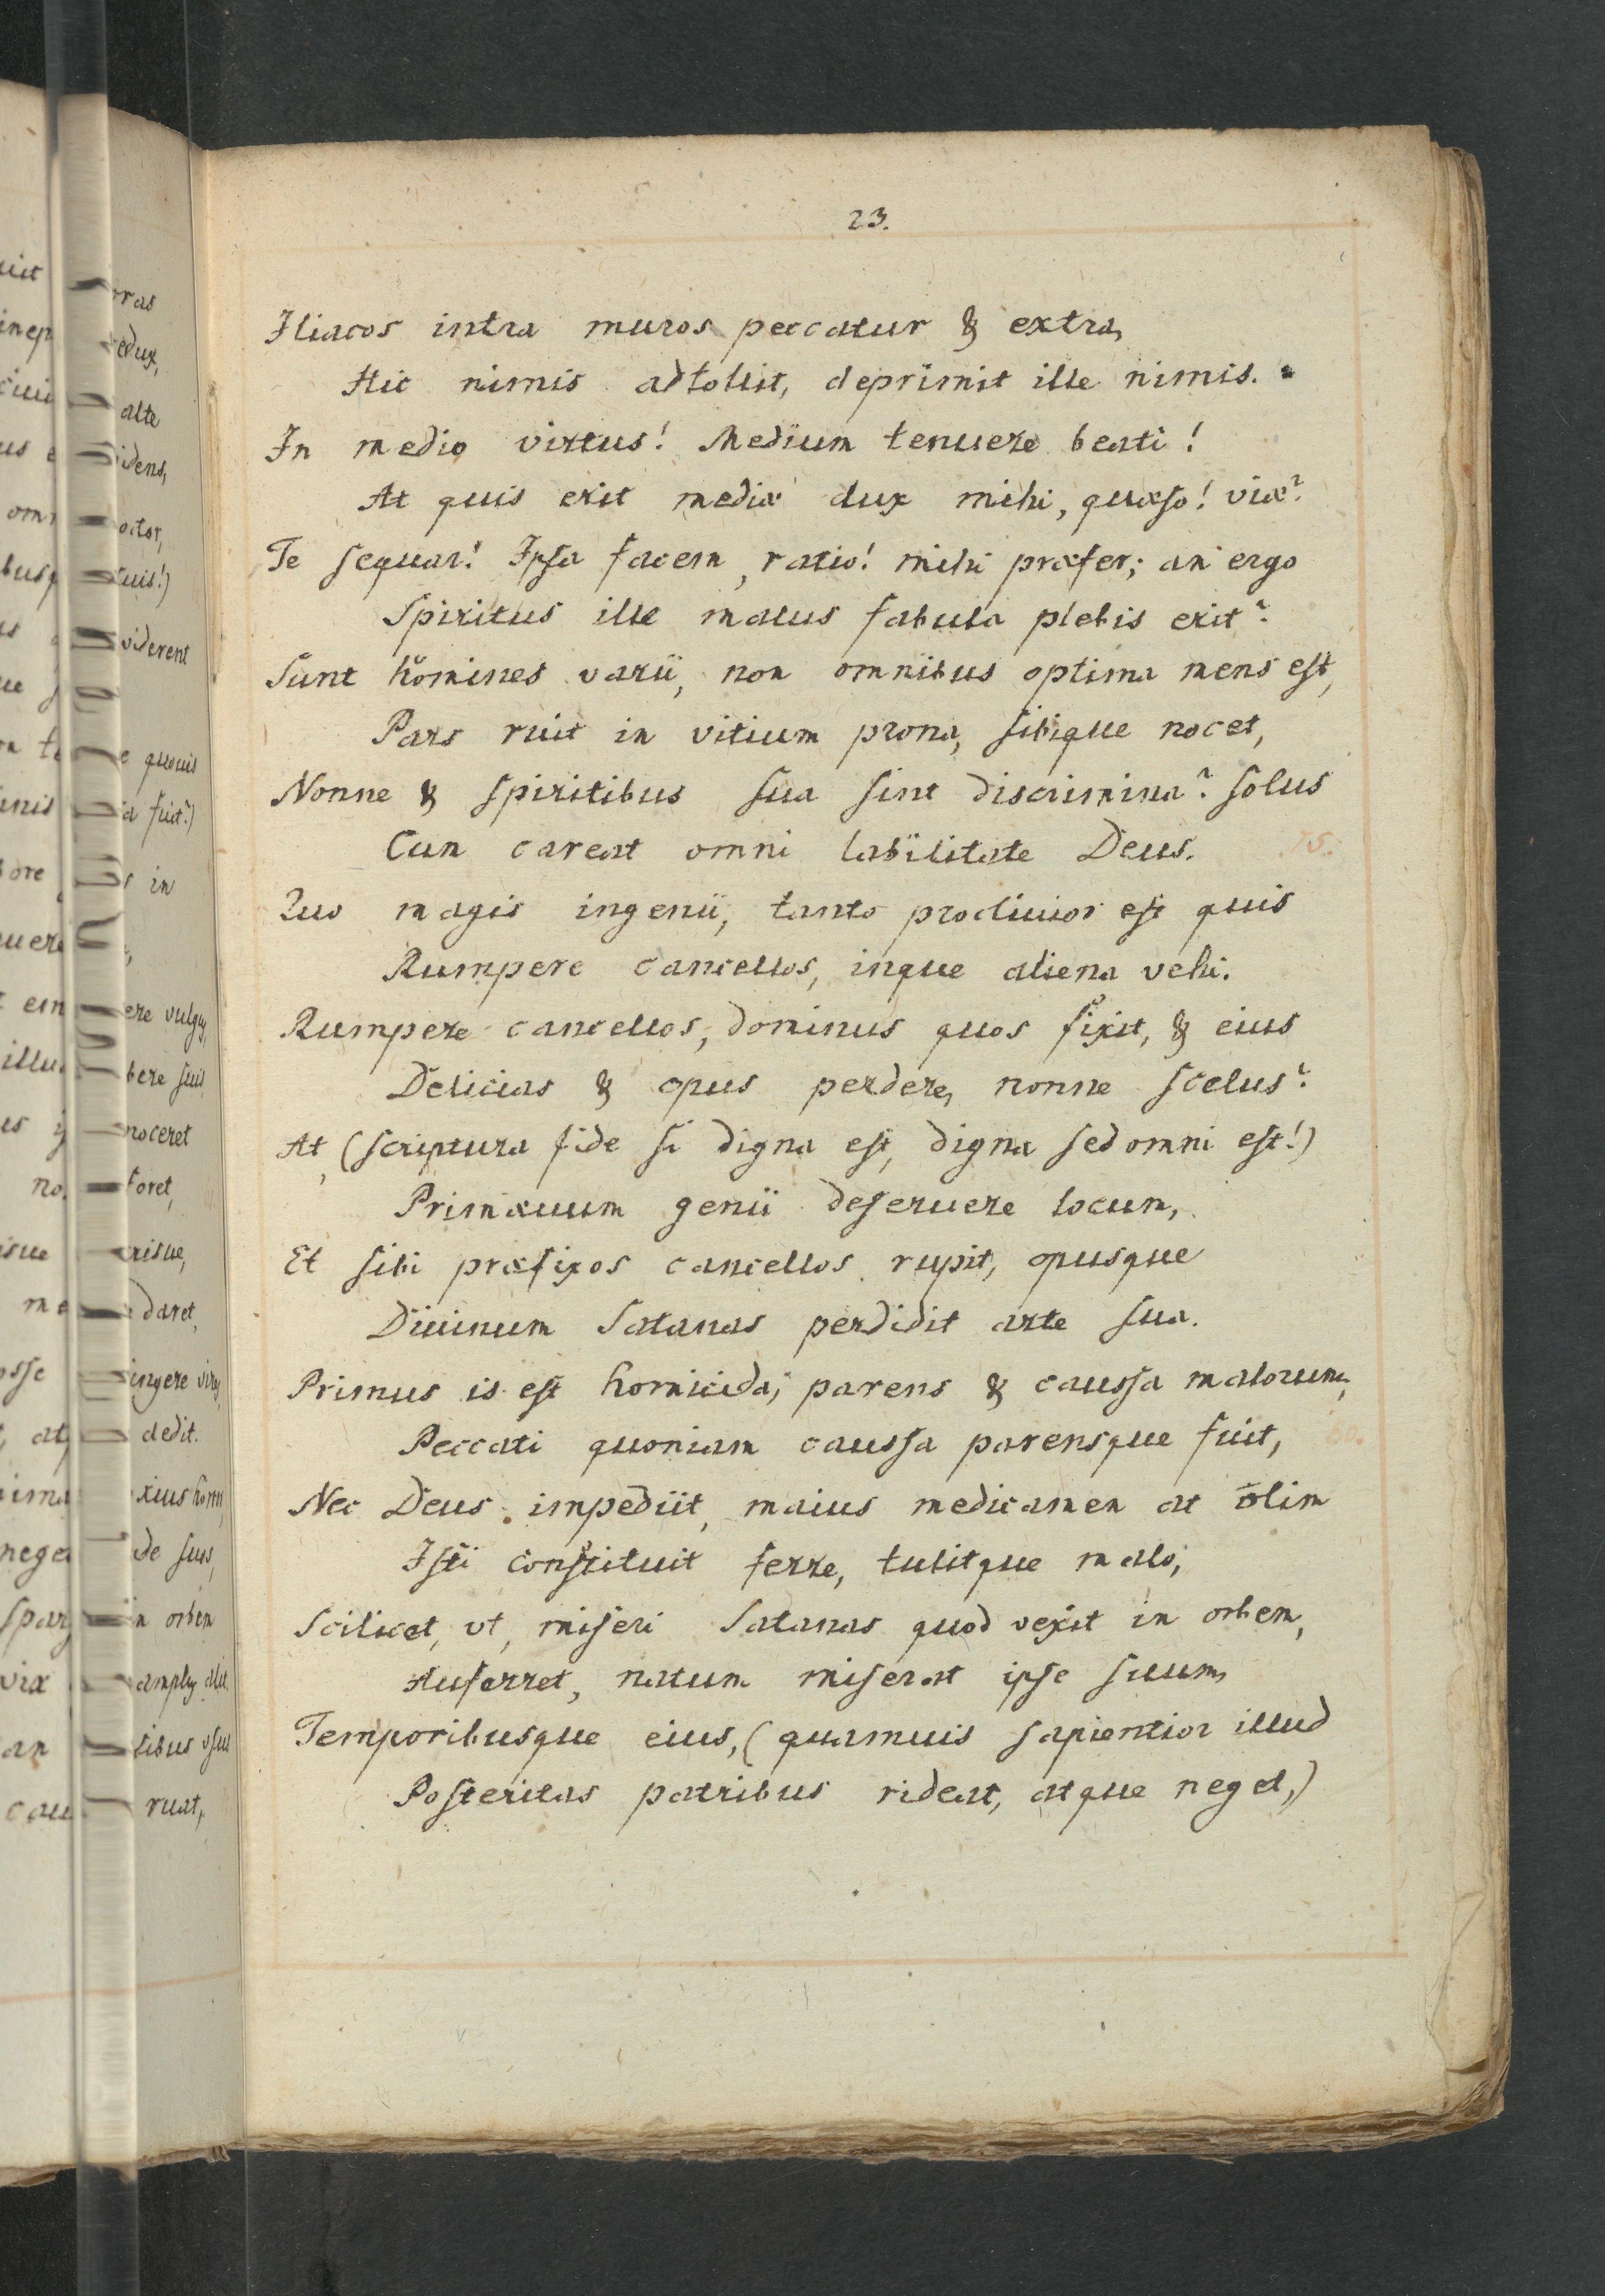 23.
Iliacos intra muros peccatur & extra,
Hic nimis adtollit, deprimit ille nimis.
In medio virtus! Medium tenuere beati!
At quis erit mediæ dux mihi, quæso! viæ?
Te sequar! Ipsa facem, ratio! mihi præfer; an ergo
Spiritus ille malus fabula plebis erit?
Sunt homines varii, non omnibus optima mens est,
Pars ruit in vitium prona, sibique nocet,
Nonne & spiritibus sua sint discrimina? solus
Cum careat omni labilitate Deus. 75.
Quo magis ingenii, tanto procliuior est quis
Rumpere cancellos, inque aliena vehi.
Rumpere cancellos, dominus quos fixit, & eius
Delicias & opus perdere, nonne scelus?
At, (scriptura fide si digna est, digna sed omni est!)
Primæuum genii deseruere locum,
Et sibi præfixos cancellos rupit, opusque
Diuinum Satanas perdidit arte sua.
Primus is est homicida; parens & caussa malorum,
Peccati quoniam caussa parensque fuit, 80.
Nec Deus impediit, maius medicamen at olim
Isti constituit ferre, tulitque malo;
Scilicet, vt, miseri Satanas quod vexit in orbem,
Auferret, natum miserat ipse suum,
Temporibusque eius, (quamuis sapientior illud
Posteritas patribus rideat, atque neget,)
rras
redux,
alte
idens,
viderent
e quouis
s in
ere vulgus,
bere suis
noceret
foret,
daret,
ingere
dedit.
de suis,
in orbem
ruat,